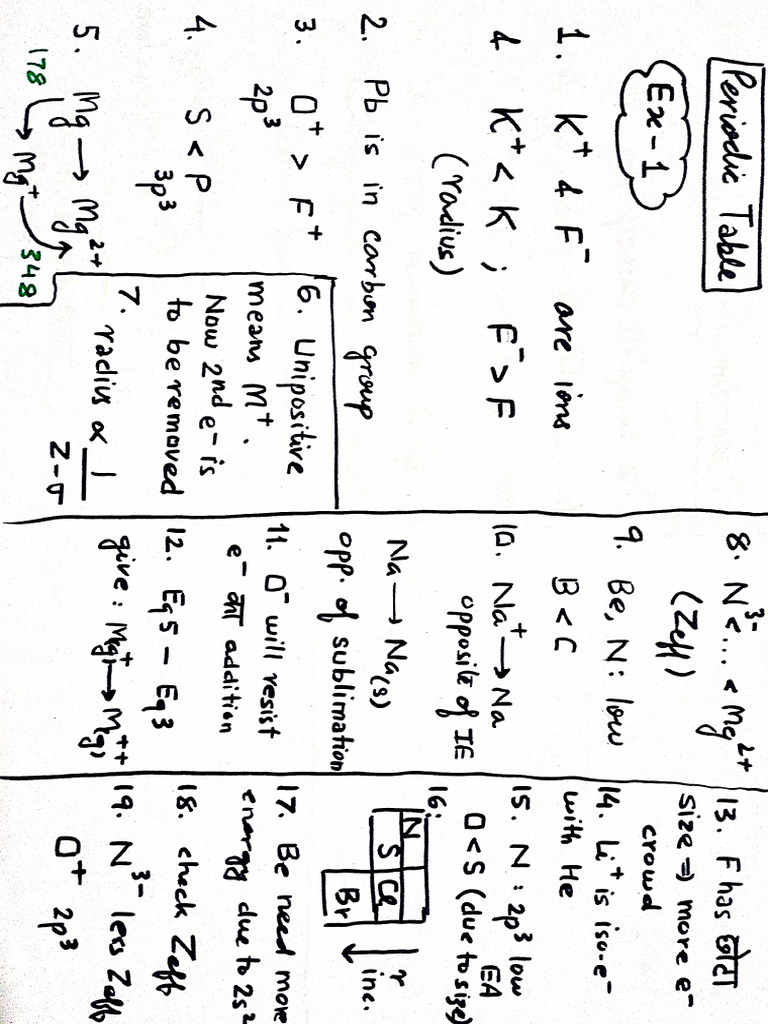 Periodic Table
Ex-1
1. K⁺ & F⁻ are ions
& K⁺ < K ; F⁻ > F
(radius)
2. Pb is in carbon group
3. O⁺ > F⁺
2p³
4. S < P
3p³
5. Mg → Mg²⁺
178 → Mg⁺ 348
6. Unipositive
means M⁺.
Now 2nd e⁻ is
to be removed
7. radius ∝ 1
Z-σ
8. N³⁻ < ... < Mg²⁺
(Zeff)
9. Be, N : low
B < C
10. Na⁺ → Na
opposite of IE
Na → Na(s)
opp. of sublimation
11. O⁻ will resist
e⁻ का addition
12. Eq5 - Eq3
give : M⁺(g) → M⁺⁺(g)
13. F has छोटा
size ⇒ more e⁻
crowd
14. Li⁺ is iso-e⁻
with He
15. N : 2p³ low
EA
O < S (due to size)
16:
N
S Cl
Br
r
inc.
17. Be need more
energy due to 2s²
18. check Zeff
19. N³⁻ less Zeff
O⁺ 2p³